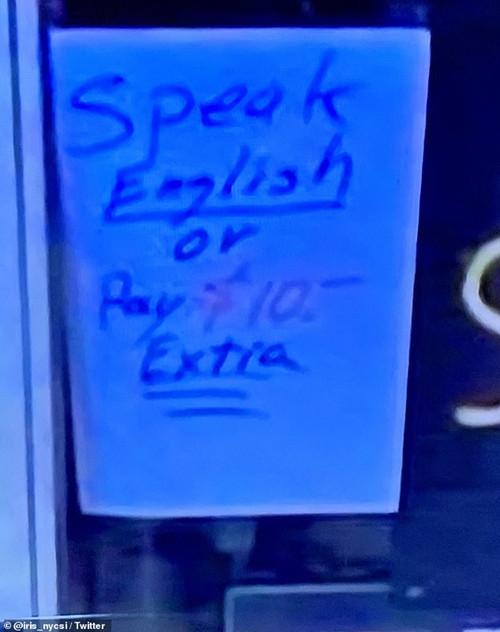 Speak
English
or
Pay $10.-
Extra
© @iris_nycsi / Twitter